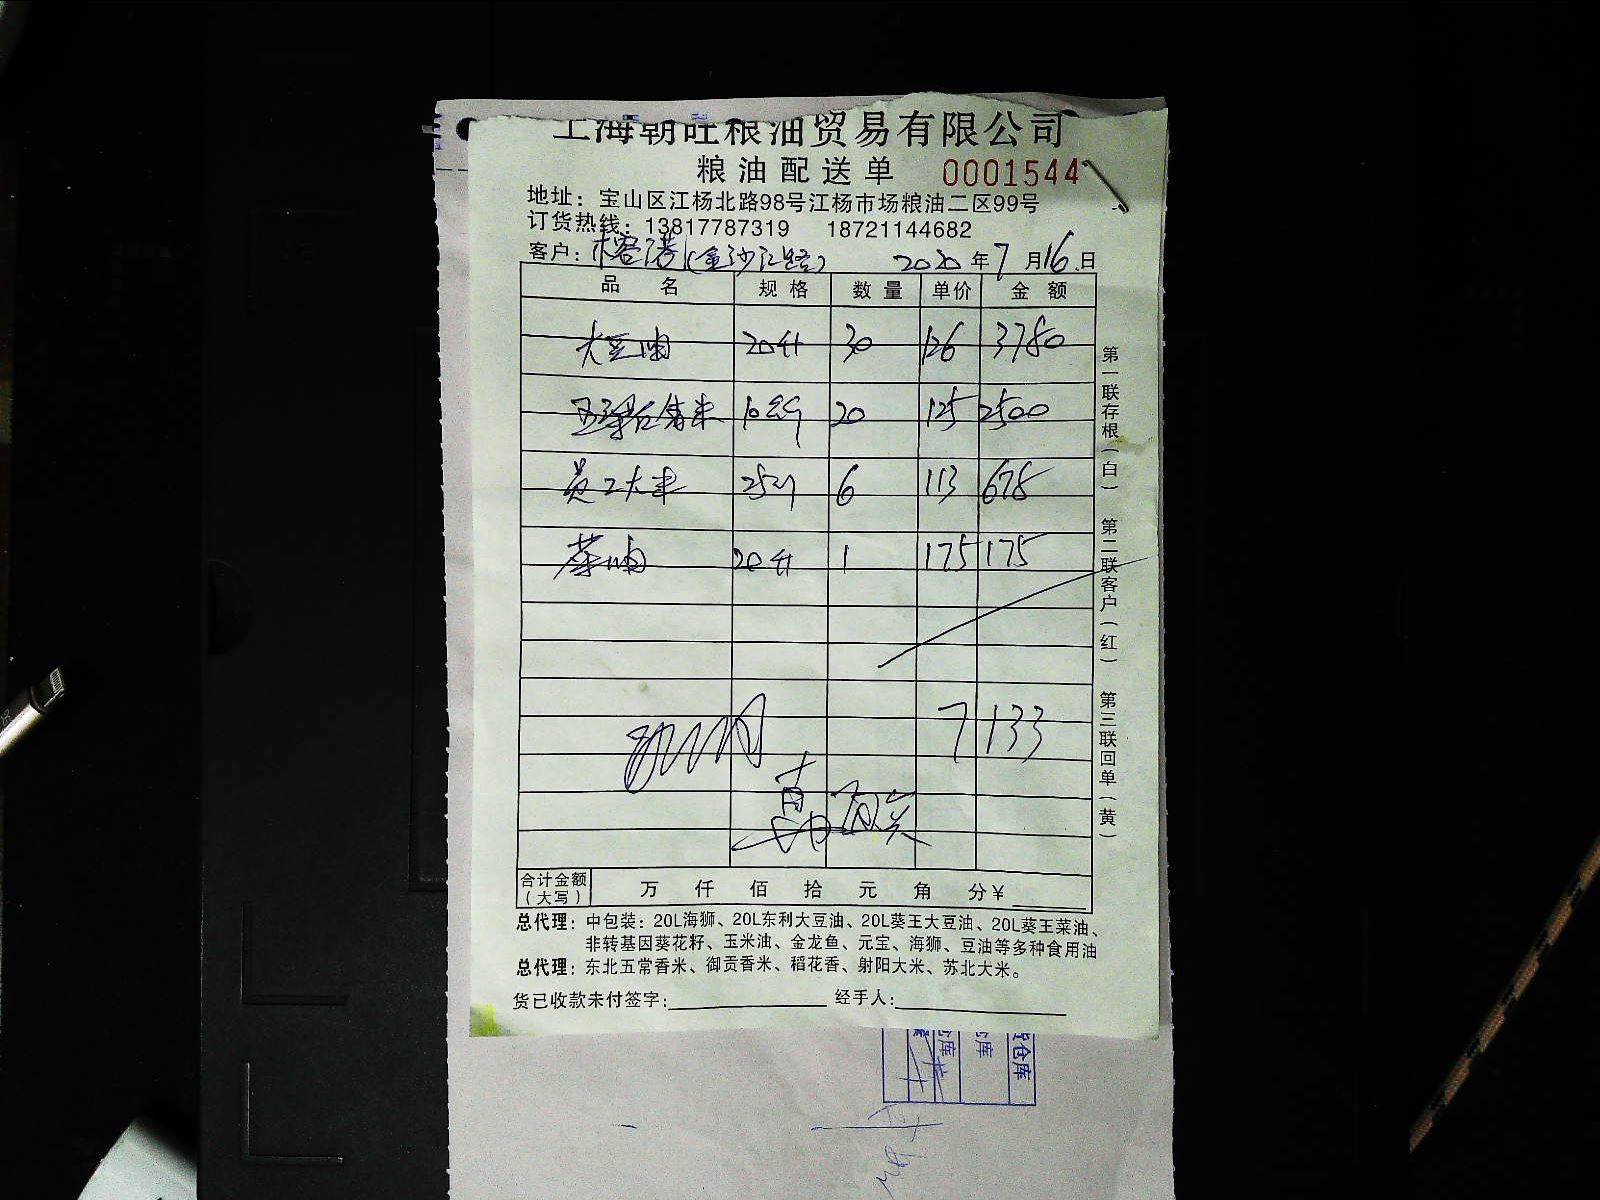 上海朝旺粮油贸易有限公司
粮油配送单 0001544
地址：宝山区江杨北路98号江杨市场粮油二区99号
订货热线：13817787319 18721144682
客户：(金沙江路) 2020年7月16日
品名 规格 数量 单价 金额
大豆油 20升 30 126 3780
10公斤 20 125 2500
员工大米 25斤 6 113 678
菜油 20升 1 175 175
7133
合计金额（大写） 万 仟 佰 拾 元 角 分￥
总代理：中包装：20L海狮、20L东利大豆油、20L葵王大豆油、20L葵王菜油、
非转基因葵花籽、玉米油、金龙鱼、元宝、海狮、豆油等多种食用油
总代理：东北五常香米、御贡香米、稻花香、射阳大米、苏北大米。
货已收款未付签字： 经手人：
第一联存根（白） 第二联客户（红） 第三联回单（黄）
仓库